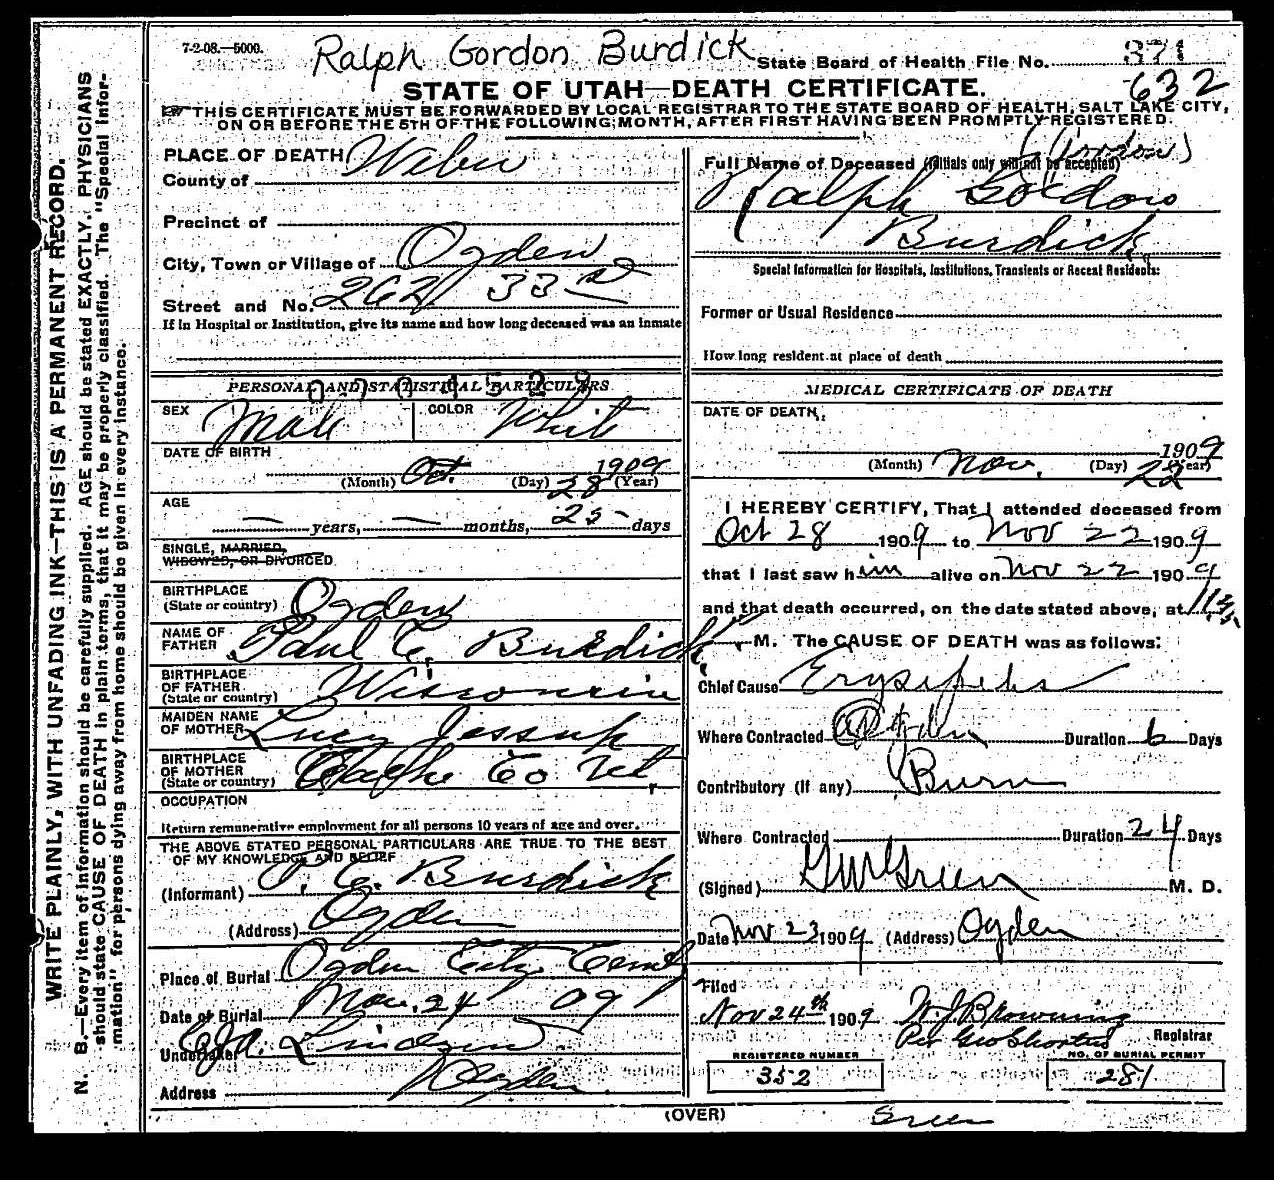 7-2-08.—5000.
Ralph Gordon Burdick
State Board of Health File No. 371
632
STATE OF UTAH—DEATH CERTIFICATE.
THIS CERTIFICATE MUST BE FORWARDED BY LOCAL REGISTRAR TO THE STATE BOARD OF HEALTH, SALT LAKE CITY,
ON OR BEFORE THE 5TH OF THE FOLLOWING MONTH, AFTER FIRST HAVING BEEN PROMPTLY REGISTERED.
PLACE OF DEATH
County of Weber
Precinct of
City, Town or Village of Ogden
Street and No. 262 33 st
If in Hospital or Institution, give its name and how long deceased was an inmate
(Gordon)
Full Name of Deceased (Initials only will not be accepted)
Ralph Gordon
Burdick
Special Information for Hospitals, Institutions, Transients or Recent Residents:
Former or Usual Residence
How long resident at place of death
PERSONAL AND STATISTICAL PARTICULARS
SEX Male COLOR White
DATE OF BIRTH
1909
(Month) Oct. (Day) 28 (Year)
AGE
— years, — months, 25 days
SINGLE, MARRIED,
WIDOWED, OR DIVORCED
BIRTHPLACE
(State or country) Ogden
NAME OF
FATHER Paul C. Burdick
BIRTHPLACE
OF FATHER
(State or country) Wisconsin
MAIDEN NAME
OF MOTHER Lucy Jessup
BIRTHPLACE
OF MOTHER
(State or country) Cache Co Ut
OCCUPATION
Return remunerative employment for all persons 10 years of age and over.
THE ABOVE STATED PERSONAL PARTICULARS ARE TRUE TO THE BEST
OF MY KNOWLEDGE AND BELIEF
(Informant) P. C. Burdick
(Address) Ogden
Place of Burial Ogden City Cemt
Date of Burial Nov. 24 09
Undertaker Lindsen
Address Ogden
MEDICAL CERTIFICATE OF DEATH
DATE OF DEATH,
1909
(Month) Nov. (Day) 22 (Year)
I HEREBY CERTIFY, That I attended deceased from
Oct 28 1909 to Nov 22 1909
that I last saw him alive on Nov 22 1909
and that death occurred, on the date stated above, at
M. The CAUSE OF DEATH was as follows:
Chief Cause Erysipelas
Where Contracted Ogden Duration 6 Days
Contributory (if any) Burn
Where Contracted Duration 24 Days
(Signed) GW Green M. D.
Date Nov 23 1909 (Address) Ogden
Filed
Nov 24th 1909 W. J. Browning
Per Geo Shorten Registrar
REGISTERED NUMBER
352
NO. OF BURIAL PERMIT
281
(OVER)
Green
WRITE PLAINLY, WITH UNFADING INK—THIS IS A PERMANENT RECORD.
N. B.—Every item of information should be carefully supplied. AGE should be stated EXACTLY. PHYSICIANS
should state CAUSE OF DEATH in plain terms, that it may be properly classified. The "Special Infor-
mation" for persons dying away from home should be given in every instance.